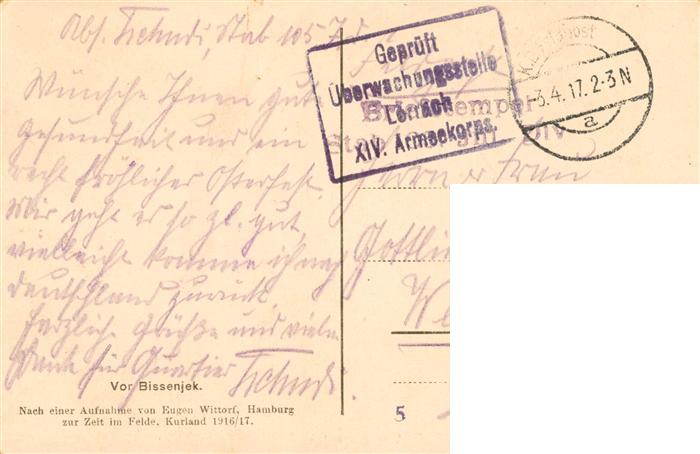 Abs. Tschudi, Stab 105 J. D.
Wünsche Ihnen gute
Gesundheit und ein
recht fröhliches Osterfest.
Mir geht es so zl. gut,
vielleicht komme ich nach
Deutschland zurück.
Herzliche Grüße und vielen
Dank für Quartier Tschudi.
Vor Bissenjek.
Nach einer Aufnahme von Eugen Wittorf, Hamburg
zur Zeit im Felde, Kurland 1916/17.
Geprüft
Überwachungsstelle
Lörrach
XIV. Armeekorps.
3.4.17. 2-3 N
a
Stab
Div
Herrn u Frau
Gottlie
We
5